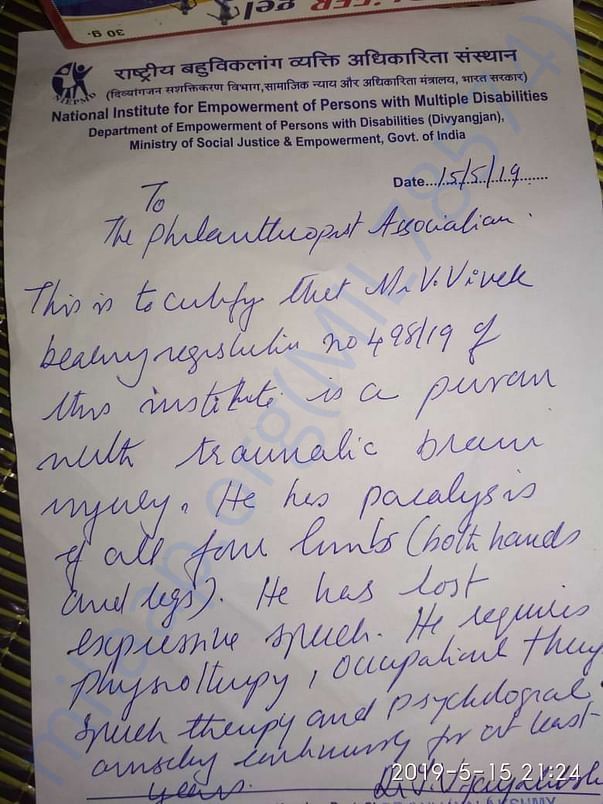 30 g.
राष्ट्रीय बहुविकलांग व्यक्ति अधिकारिता संस्थान
(दिव्यांगजन सशक्तिकरण विभाग,सामाजिक न्याय और अधिकारिता मंत्रालय, भारत सरकार)
NIEPMD
National Institute for Empowerment of Persons with Multiple Disabilities
Department of Empowerment of Persons with Disabilities (Divyangjan),
Ministry of Social Justice & Empowerment, Govt. of India
Date...15/5/19
To
The Philanthropist Association.
This is to certify that Mr V. Vivek
bearing registration no 498/19 of
this institute is a person
with traumatic brain
injury. He has paralysis
of all four limbs (both hands
and legs). He has lost
expressive speech. He requires
physiotherapy, occupational therapy
speech therapy and psychological
continuously for at least
years.
2019-5-15 21:24
milaap.org(MIL78574)